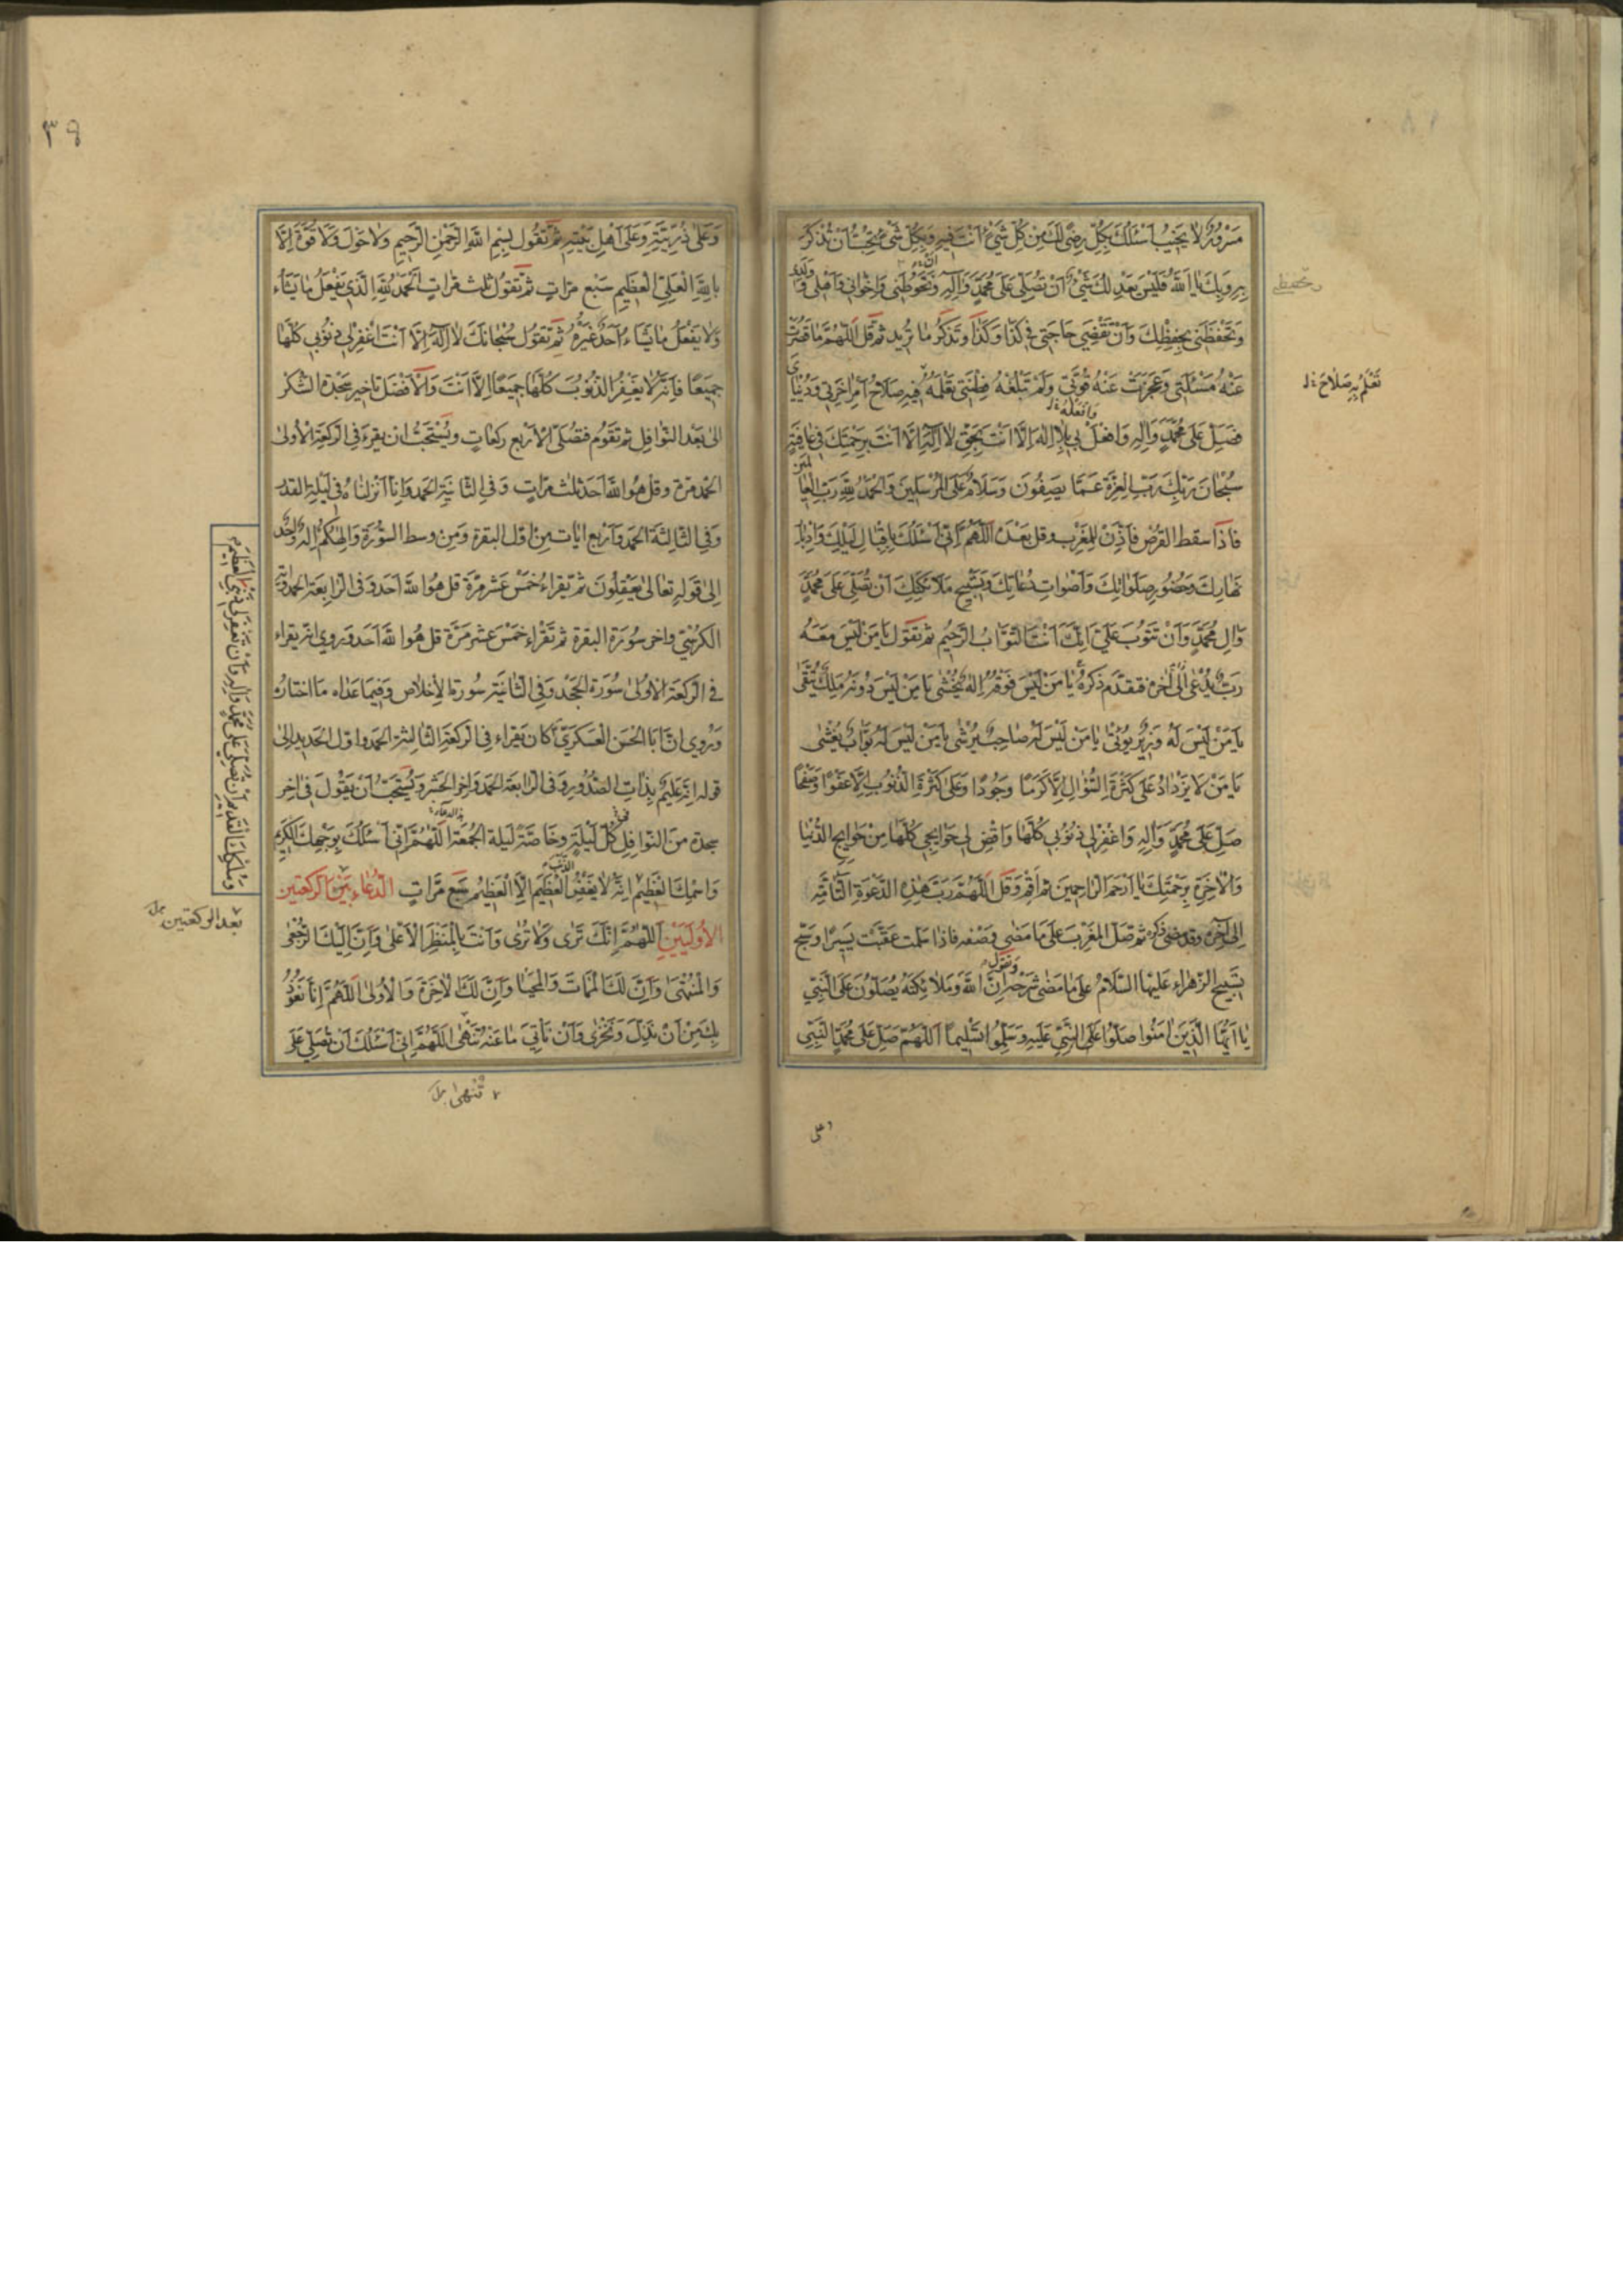 مَزْوُدٌ لا يَخيبُ اَسْئَلُكَ بِكُلِّ رِضًى لَكَ مِنْ كُلِّ شَيْءٍ اَنْتَ فيهِ وَبِكُلِّ شَيْءٍ تُحِبُّ اَنْ تُذْكَرَ
بِهِ وَبِكَ يا اَللّٰهُ فَلَيْسَ يَعْدِلُكَ شَيْءٌ اَنْ تُصَلِّيَ عَلىٰ مُحَمَّدٍ وَآلِهِ وَتَحُوطَني وَاِخْواني وَاَهْلي وَوَلَدي
وَتَحْفَظَني بِحِفْظِكَ وَاَنْ تَقْضِيَ حاجَتي في كَذا وَكَذا وَتَذكُرُ ما تُريد ثمّ قُل اَللّٰهُمَّ ما قَصُرَتْ
عَنْهُ مَسْئَلَتي وَعَجَزَتْ عَنْهُ قُوَّتي وَلَمْ تَبْلُغْهُ فِطْنَتي تَعْلَمُ فيهِ صَلاحَ اَمْرِ آخِرَتي وَدُنْيايَ
فَصَلِّ عَلىٰ مُحَمَّدٍ وَآلِهِ وَافْعَلْ بي يا لا اِلٰهَ اِلّا اَنْتَ بِحَقِّ لا اِلٰهَ اِلّا اَنْتَ بِرَحْمَتِكَ في عافِيَةٍ
سُبْحانَ رَبِّكَ رَبِّ الْعِزَّةِ عَمّا يَصِفُونَ وَسَلامٌ عَلَى الْمُرْسَلينَ وَالْحَمْدُ لِلّٰهِ رَبِّ الْعالَمينَ
فاذا سقط القُرْص فَاَذِّنْ لِلمَغْرِب وقل بَعْدَهُ اَللّٰهُمَّ اِنّي اَسْئَلُكَ بِاِقْبالِ لَيْلِكَ وَاِدْبارِ
نَهارِكَ وَحُضُورِ صَلَواتِكَ وَاَصْواتِ دُعاتِكَ وَتَسْبيحِ مَلائِكَتِكَ اَنْ تُصَلِّيَ عَلىٰ مُحَمَّدٍ
وَآلِ مُحَمَّدٍ وَاَنْ تَتُوبَ عَلَيَّ اِنَّكَ اَنْتَ التَّوّابُ الرَّحيمُ ثمّ تقول يا مَنْ لَيْسَ مَعَهُ
رَبٌّ يُدْعىٰ اِلىٰ آخره فقد تقدّم ذكره يا مَنْ لَيْسَ فَوْقَهُ اِلٰهٌ يُخْشىٰ يا مَنْ لَيْسَ دُونَهُ مَلِكٌ يُتَّقىٰ
يا مَنْ لَيْسَ لَهُ وَزيرٌ يُؤْتىٰ يا مَنْ لَيْسَ لَهُ صاحِبٌ يُرْشىٰ يا مَنْ لَيْسَ لَهُ بَوّابٌ يُغْشىٰ
يا مَنْ لا يَزْدادُ عَلىٰ كَثْرَةِ السُّؤالِ اِلّا كَرَمًا وَجُودًا وَعَلىٰ كَثْرَةِ الذُّنُوبِ اِلّا عَفْوًا وَصَفْحًا
صَلِّ عَلىٰ مُحَمَّدٍ وَآلِهِ وَاغْفِرْ لي ذُنُوبي كُلَّها وَاقْضِ لي حَوائِجي كُلَّها مِنْ حَوائِجِ الدُّنْيا
وَالْآخِرَةِ بِرَحْمَتِكَ يا اَرْحَمَ الرّاحِمينَ ثمّ اَقِمْ وَقُل اَللّٰهُمَّ رَبَّ هٰذِهِ الدَّعْوَةِ التّامَّةِ
اِلىٰ آخره وقد مضى ذكره ثمّ صلّ المَغْرِبَ عَلىٰ ما مضى وصفه فاذا سلّمت عَقَّبْتَ يَسيرًا وَسَبِّحْ
تسبيح الزّهراء عَلَيْها السَّلامُ عَلىٰ ما مَضىٰ شرحه وَتَقُول اِنَّ اللّٰهَ وَمَلائِكَتَهُ يُصَلُّونَ عَلَى النَّبِيِّ
يا اَيُّهَا الَّذينَ آمَنُوا صَلُّوا عَلَيْهِ وَسَلِّمُوا تَسْليمًا اَللّٰهُمَّ صَلِّ عَلىٰ مُحَمَّدٍ النَّبِيِّ
تَعْلَمُ بِهِ صَلاحَ
وعلى
٣٩
وَعَلىٰ ذُرِّيَّتِهِ وَعَلىٰ اَهْلِ بَيْتِهِ ثمّ تقول بِسْمِ اللّٰهِ الرَّحْمٰنِ الرَّحيمِ وَلا حَوْلَ وَلا قُوَّةَ اِلّا
بِاللّٰهِ الْعَلِيِّ الْعَظيمِ سَبْع مَرّاتٍ ثمّ تَقُولُ ثلث مَرّاتٍ اَلْحَمْدُ لِلّٰهِ الَّذي يَفْعَلُ ما يَشاءُ
وَلا يَفْعَلُ ما يَشاءُ اَحَدٌ غَيْرُهُ ثمّ تقول سُبْحانَكَ لا اِلٰهَ اِلّا اَنْتَ اغْفِرْ لي ذُنُوبي كُلَّها
جَميعًا فَاِنَّهُ لا يَغْفِرُ الذُّنُوبَ كُلَّها جَميعًا اِلّا اَنْتَ وَالْاَفْضَل تاخير سَجْدَة الشّكْر
الىٰ بَعْد النّوافِل ثمّ تقوم فتصلّى الْاَربع ركعاتٍ ويُسْتحبّ ان يقرء في الرّكعة الْاُولىٰ
الحمد مرّة وقل هو اللّٰه احد ثلث مرّاتٍ وَفي الثّانِيَةِ الحمد وَانّا اَنْزَلْناهُ في لَيْلَةِ القدر
وَفي الثّالِثَة الحمد وَاَرْبع ايات مِنْ اوّل البقرة وَمِن وسط السّورَة وَاِلٰهُكُمْ اِلٰهٌ واحِد
اِلىٰ قَوله تعالىٰ يَعْقِلُونَ ثمّ يَقراءُ خَمْس عَشر مَرّة قل هُوَ اللّٰه اَحَد وَفي الرّابِعَة الحمد وآية
الكرسيّ واخر سُورَة البقرة ثمّ تقْراء خمْسَ عشر مَرّة قل هُو اللّٰه اَحَد وَروي انّه يقراء
في الرّكعَة الْاُولىٰ سُورَة الجَحْد وَفي الثّانية سُورة الْاِخلاص وَفيما عَداه ما اختارَ
وَرُوي انَّ اَبا الحَسَن العَسْكَريّ كان يَقْراء في الرّكعَةِ الثّالِثَة الحمد واوّل الحَديد اِلىٰ
قوله اِنَّهُ عَليمٌ بِذاتِ الصُّدُورِ وَفي الرّابعَة الحَمْد وَاخر الحَشْر وَيُسْتَحَبّ اَنْ يَقُولَ في آخِر
سجدة مِنَ النّوافِل كُلّ لَيْلَةٍ وخاصّةً لَيلة الجُمْعَة اَللّٰهُمَّ اِنّي اَسْئَلُكَ بِوَجْهِكَ الْكَريمِ
وَاسْمِكَ الْعَظيمِ اِنَّهُ لا يَغْفِرُ الذَّنْبَ الْعَظيمَ اِلَّا الْعَظيمُ سَبْع مَرّاتٍ الدُّعاء بَيْن الرَّكعَتين
الاُولَيَيْنِ اَللّٰهُمَّ اِنَّكَ تَرىٰ وَلا تُرىٰ وَاَنْتَ بِالْمَنْظَرِ الْاَعْلىٰ وَاَنَّ اِلَيْكَ الرُّجْعىٰ
وَالْمُنْتَهىٰ وَاَنَّ لَكَ الْمَماتَ وَالْمَحْيا وَاَنَّ لَكَ الْآخِرَةَ وَالْاُولىٰ اَللّٰهُمَّ اِنّا نَعُوذُ
بِكَ مِنْ اَنْ نَذِلَّ وَنَخْزىٰ وَاَنْ نَأْتِيَ ما عَنْهُ تَنْهىٰ اَللّٰهُمَّ اِنّي اَسْئَلُكَ اَنْ تُصَلِّيَ عَلىٰ
وَمُلْكِكَ الْقَديمِ اَنْ تُصَلِّيَ عَلىٰ مُحَمَّدٍ وَآلِهِ وَاَنْ تَغْفِرَ لي ذَنْبِيَ الْعَظيمَ
بعد الركعتين
تنهى